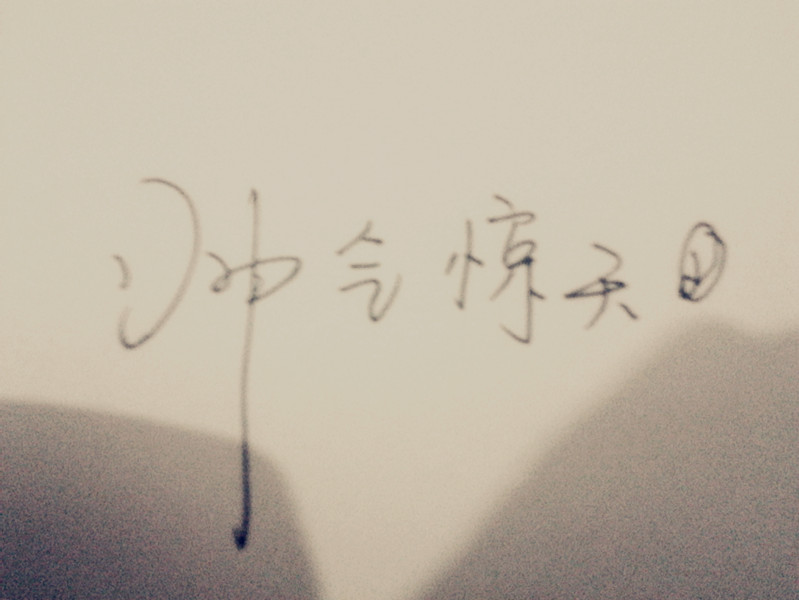 帅气惊天日